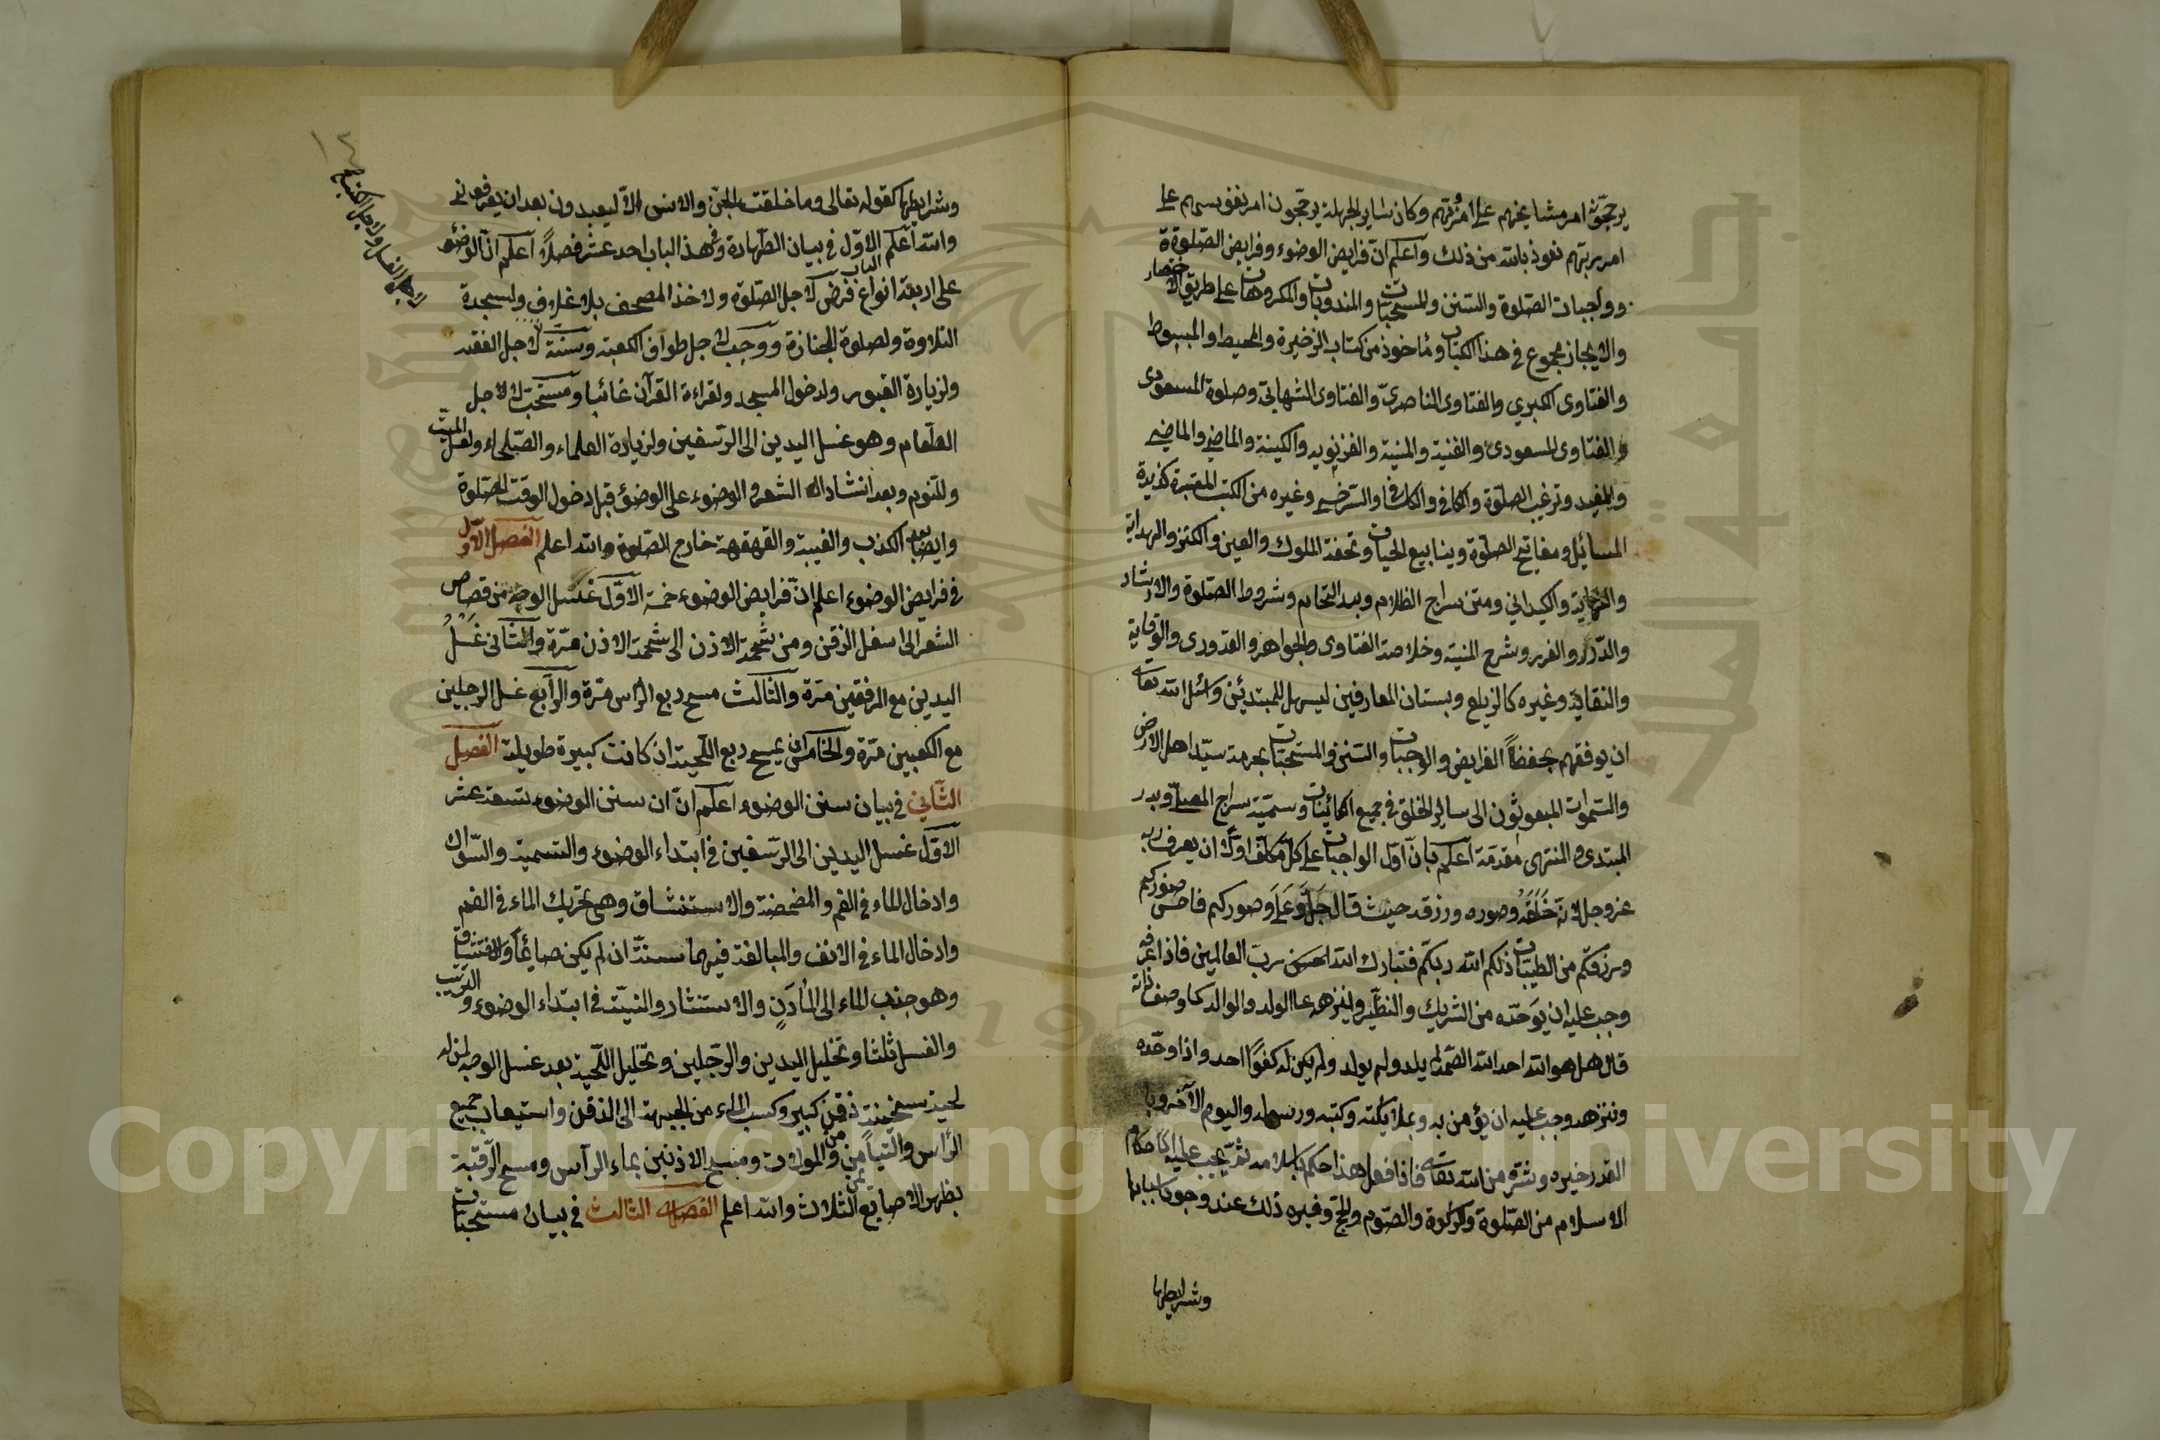 يرجحون امر مشايخهم على امر ربهم وكان ساير الجهلة يرجحون امر نفوسهم على
امر ربهم نعوذ بالله من ذلك واعلم ان فرايض الوضوء وفرايض الصلوة
وواجبات الصلوة والسنن والمستحبات والمندوبات والمكروهات على طريق الاختصار
والايجاز مجموع في هذا الكتاب ومأخوذ من كتاب الزخيرة والمحيط والمبسوط
والفتاوى الكبري والفتاوى الناصري والفتاوى الشهابي وصلوة المسعودى
والفتاوى المسعودى والقنية والمنية والغزنويه والماضي
والمفيد وترغيب الصلوة والكافى والسرخسى وغيره من الكتب المعتبرة كزبدة
المسائل ومفاتح الصلوة وينابيع الحيات وتحفة الملوك والعين والكنز والهداية
والكيداني ومتن سراج الظلام وبدر التمام وشروط الصلوة والارشاد
والدرر والغرر وشرح المنية وخلاصة الفتاوى والجواهر والقدورى والوقاية
والنقاية وغيره كالزيلع وبستان العارفين ليسهل للمبتدئين واسئل الله تعالى
ان يوفقهم بحفظ الفرايض والوجبات والسنن والمستحبات بحرمة سيد اهل الارض
والسموات المبعوثون الى ساير الخلق في جميع الكائنات وسميته سراج المصلى وبدر
المبتدى والمنتهى مقدمة اعلم بان اول الواجبات على كل مكلف اولا ان يعرف ربه
عز وجل لانه خلقه وصوره ورزقه حيث قال جل وعلى وصوركم فاحسن صوركم
ورزقكم من الطيبات ذلكم الله ربكم فتبارك الله احسن رب العالمين فاذا عرفه
وجب عليه ان يوحده من الشريك والنظير وينزهه عن الولد والوالد كما وصف ذاته
قال هل هو الله احد الله الصمد لم يلد ولم يولد ولم يكن له كفوا احد واذا وحده
ونزهه وجب عليه ان يؤمن به وبملايكته وكتبه ورسوله واليوم الآخر وبا
القدر خيره وشره من الله تعالى فاذا فعل هذا حكم باسلامه ثم يجب عليه احكام
الاسلام من الصلوة والزكوة والصوم والحج وغيره ذلك عند وجود اسبابها
وشرايطها
وشرايطها كقوله تعالى وما خلقت الجن والانس الا ليعبدون بعد ان يعرفونى
والله اعلم الباب الاول في بيان الطهارة وفى هذا الباب احد عشر فصلا اعلم ان الوضوء
على اربعة انواع فرض لاجل الصلوة ولاخذ المصحف بلا غلاف ولسجدة
التلاوة ولصلوة الجنازة وواجب لاجل طواف الكعبة وسنة لاجل الفقه
ولزيارة القبور ولدخول المسجد ولقراءة القرآن غائبا ومستحب لاجل
الطعام وهو غسل اليدين الى الرسغين ولزيارة العلماء والصلحاء ولغسل الميت
وللنوم وبعد انشاد الشعر والوضوء على الوضوء قبل دخول الوقت الصلوة
وايضا بعد الكذب والغيبة والقهقهة خارج الصلوة والله اعلم الفصل الاول
في فرايض الوضوء اعلم ان فرايض الوضوء خمسة الاول غسل الوجه من قصاص
الشعر الى اسفل الذقن ومن شحمة الاذن الى شحمة الاذن مرة والثانى غسل
اليدين مع المرفقين مرة والثالث مسح ربع الرأس مرة والرابع غسل الرجلين
مع الكعبين مرة والخامس ان يمسح ربع اللحية ان كانت كبيرة طويلة الفصل
الثاني في بيان سنن الوضوء اعلم ان سنن الوضوء تسعة عشر
الاول غسل اليدين الى الرسغين في ابتداء الوضوء والتسمية والسواك
وادخال الماء في الفم والمضمضة والاستنشاق وهى تحريك الماء في الفم
وادخال الماء في الانف والمبالغة فيهما سنة ان لم يكن صايما والاستنشاق
وهو جذب الماء الى المادن والاستنثار والنية في ابتداء الوضوء والترتيب
والغسل ثلثا وتخليل اليدين والرجلين وتخليل اللحية بعد غسل الوجه لمن له
لحية ذقن كبير وكسب الماء من الجبهة الى الذقن واستيعاب جميع
الرأس والتيامن والموالات ومسح الاذنين بماء الرأس ومسح الرقبة
بظهر الاصابع الثلاث والله اعلم الفصل الثالث في بيان مستحبات